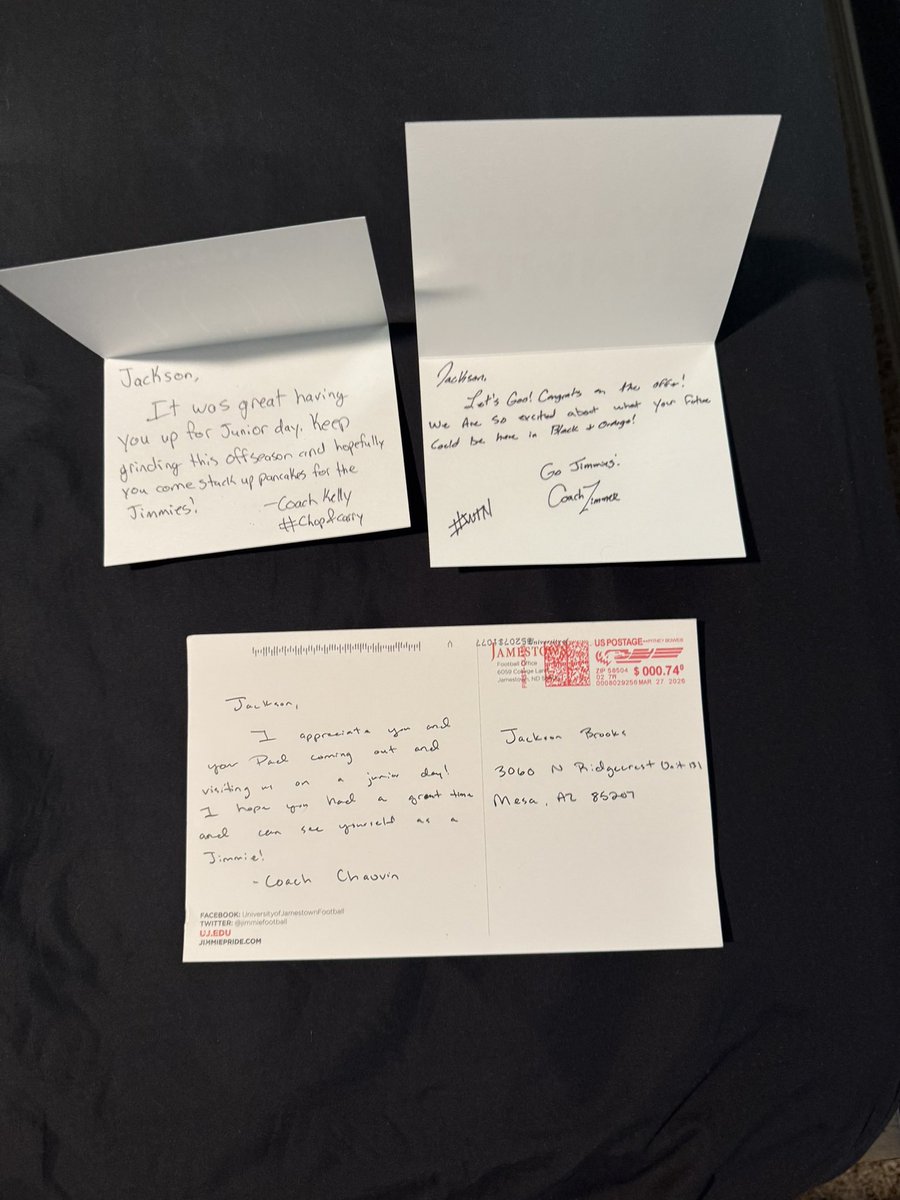 Jackson,
It was great having
you up for Junior day. Keep
grinding this offseason and hopefully
you come stack up pancakes for the
Jimmies!
-Coach Kelly
#Chop&carry
Jackson,
Let's Goo! Congrats on the offer!
We Are So excited about what your Future
Could be here in Black & Orange!
Go Jimmies!
Coach Zimmer
#WIN
Jackson,
I appreciate you and
your Dad coming out and
visiting us on a junior day!
I hope you had a great time
and can see yourself as a
Jimmie!
-Coach Chauvin
FACEBOOK: UniversityofJamestownFootball
TWITTER: @jimmiefootball
UJ.EDU
JIMMIEPRIDE.COM
University of
JAMESTOWN
Football Office
6059 College Lane
Jamestown, ND
US POSTAGE PITNEY BOWES
ZIP 58504
02 7W
$ 000.74⁰
0008029256 MAR 27 2026
Jackson Brooks
3060 N Ridgecrest Unit 131
Mesa, AZ 85207